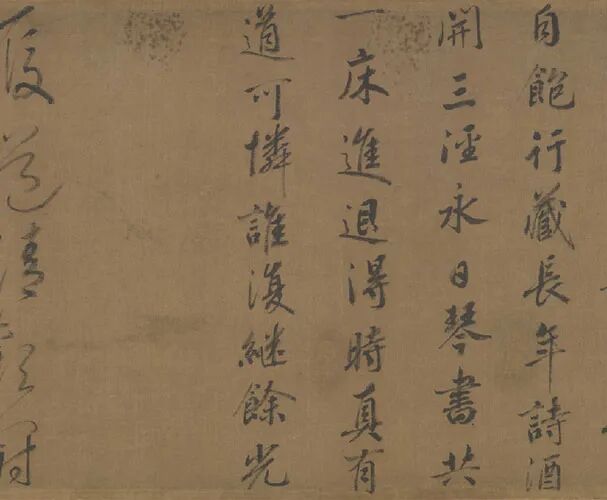 自飽行藏長年詩酒
開三逕永日琴書共
一床進退得時真有
道可憐誰復繼餘光